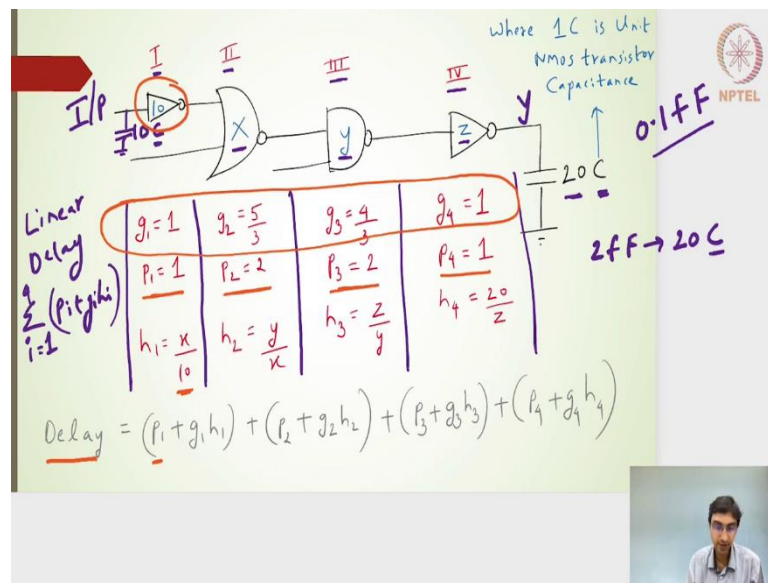 Where 1C is Unit
Nmos transistor
Capacitance
NPTEL
0.1fF
I II III IV
I/P 10 X y z Y
10C
20 C
2fF → 20 C
Linear
Delay
4
Σ (Pi+gihi)
i=1
g₁ = 1 g₂ = 5/3 g₃ = 4/3 g₄ = 1
P₁ = 1 P₂ = 2 P₃ = 2 P₄ = 1
h₁ = x/10 h₂ = y/x h₃ = z/y h₄ = 20/z
Delay = (P₁ + g₁h₁) + (P₂ + g₂h₂) + (P₃ + g₃h₃) + (P₄ + g₄h₄)